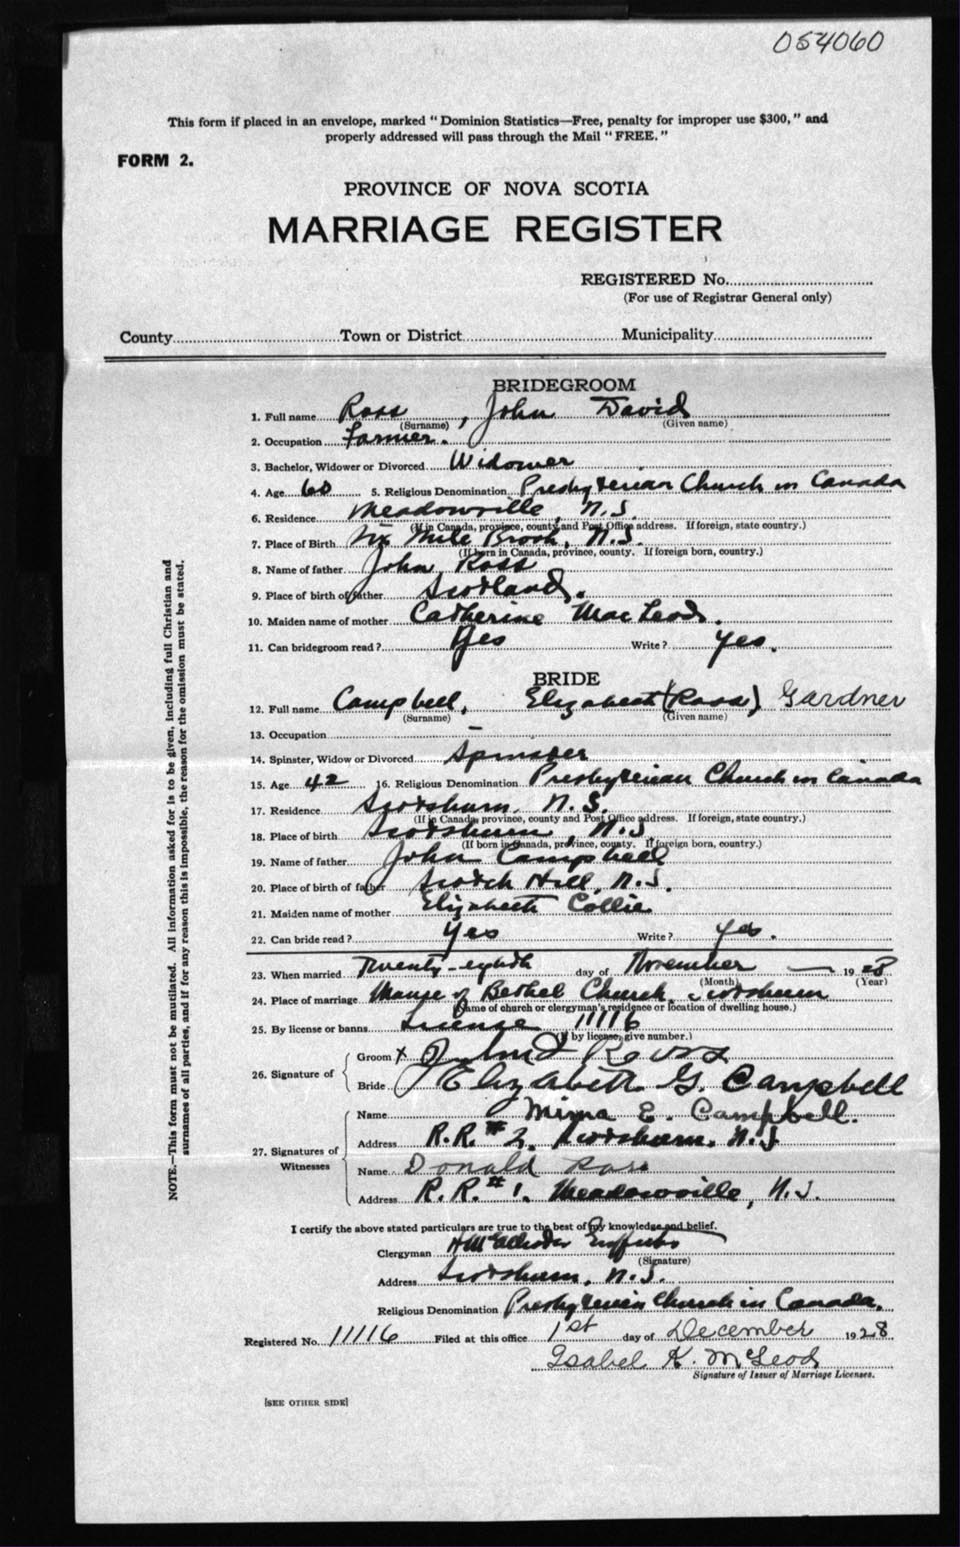 054060
This form if placed in an envelope, marked "Dominion Statistics—Free, penalty for improper use $300," and
properly addressed will pass through the Mail "FREE."
FORM 2.
PROVINCE OF NOVA SCOTIA
MARRIAGE REGISTER
REGISTERED No.
(For use of Registrar General only)
County Town or District Municipality
BRIDEGROOM
1. Full name Ross, John David
(Surname) (Given name)
2. Occupation Farmer.
3. Bachelor, Widower or Divorced Widower
4. Age 60 5. Religious Denomination Presbyterian Church in Canada
6. Residence Meadowville, N.S.
(If in Canada, province, county and Post Office address. If foreign, state country.)
7. Place of Birth Six Mile Brook, N.S.
(If born in Canada, province, county. If foreign born, country.)
8. Name of father John Ross
9. Place of birth of father Scotland.
10. Maiden name of mother Catherine MacLeod.
11. Can bridegroom read? Yes Write? Yes.
BRIDE
12. Full name Campbell, Elizabeth (Ross) Gardner
(Surname) (Given name)
13. Occupation —
14. Spinster, Widow or Divorced Spinster
15. Age 42 16. Religious Denomination Presbyterian Church in Canada
17. Residence Scotsburn, N.S.
(If in Canada, province, county and Post Office address. If foreign, state country.)
18. Place of birth Scotsburn, N.S.
(If born in Canada, province, county. If foreign born, country.)
19. Name of father John Campbell
20. Place of birth of father Scotch Hill, N.S.
21. Maiden name of mother Elizabeth Collie
22. Can bride read? Yes Write? Yes.
23. When married Twenty-eighth day of November — 1928
(Month) (Year)
24. Place of marriage Manse of Bethel Church, Scotsburn
(Name of church or clergyman's residence or location of dwelling house.)
25. By license or banns License 11116
(If by license, give number.)
26. Signature of
Groom X John D Ross
Bride Elizabeth G. Campbell
27. Signatures of Witnesses
Name Minna E. Campbell.
Address R.R. #2, Scotsburn, N.S.
Name Donald Ross
Address R.R. #1. Meadowville, N.S.
I certify the above stated particulars are true to the best of my knowledge and belief.
Clergyman
(Signature)
Address Scotsburn, N.S.
Religious Denomination Presbyterian Church in Canada.
Registered No. 11116 Filed at this office 1st day of December 1928
Isabel K. McLeod
Signature of Issuer of Marriage Licenses.
[SEE OTHER SIDE]
NOTE.—This form must not be mutilated. All information asked for is to be given, including full Christian and
surnames of all parties, and if for any reason this is impossible, the reason for the omission must be stated.